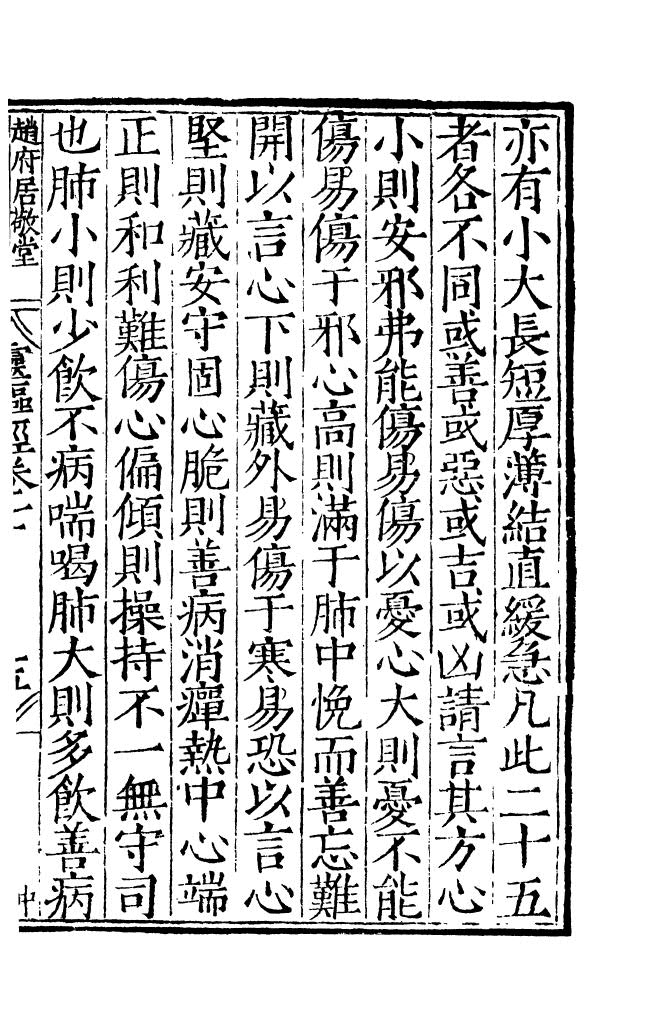 亦有小大長短厚薄結直緩急凡此二十五
者各不同或善或惡或吉或凶請言其方心
小則安邪弗能傷易傷以憂心大則憂不能
傷易傷于邪心高則滿于肺中悗而善忘難
開以言心下則藏外易傷于寒易恐以言心
堅則藏安守固心脆則善病消癉熱中心端
正則和利難傷心偏傾則操持不一無守司
也肺小則少飲不病喘喝肺大則多飲善病
趙府居敬堂
靈樞經卷七